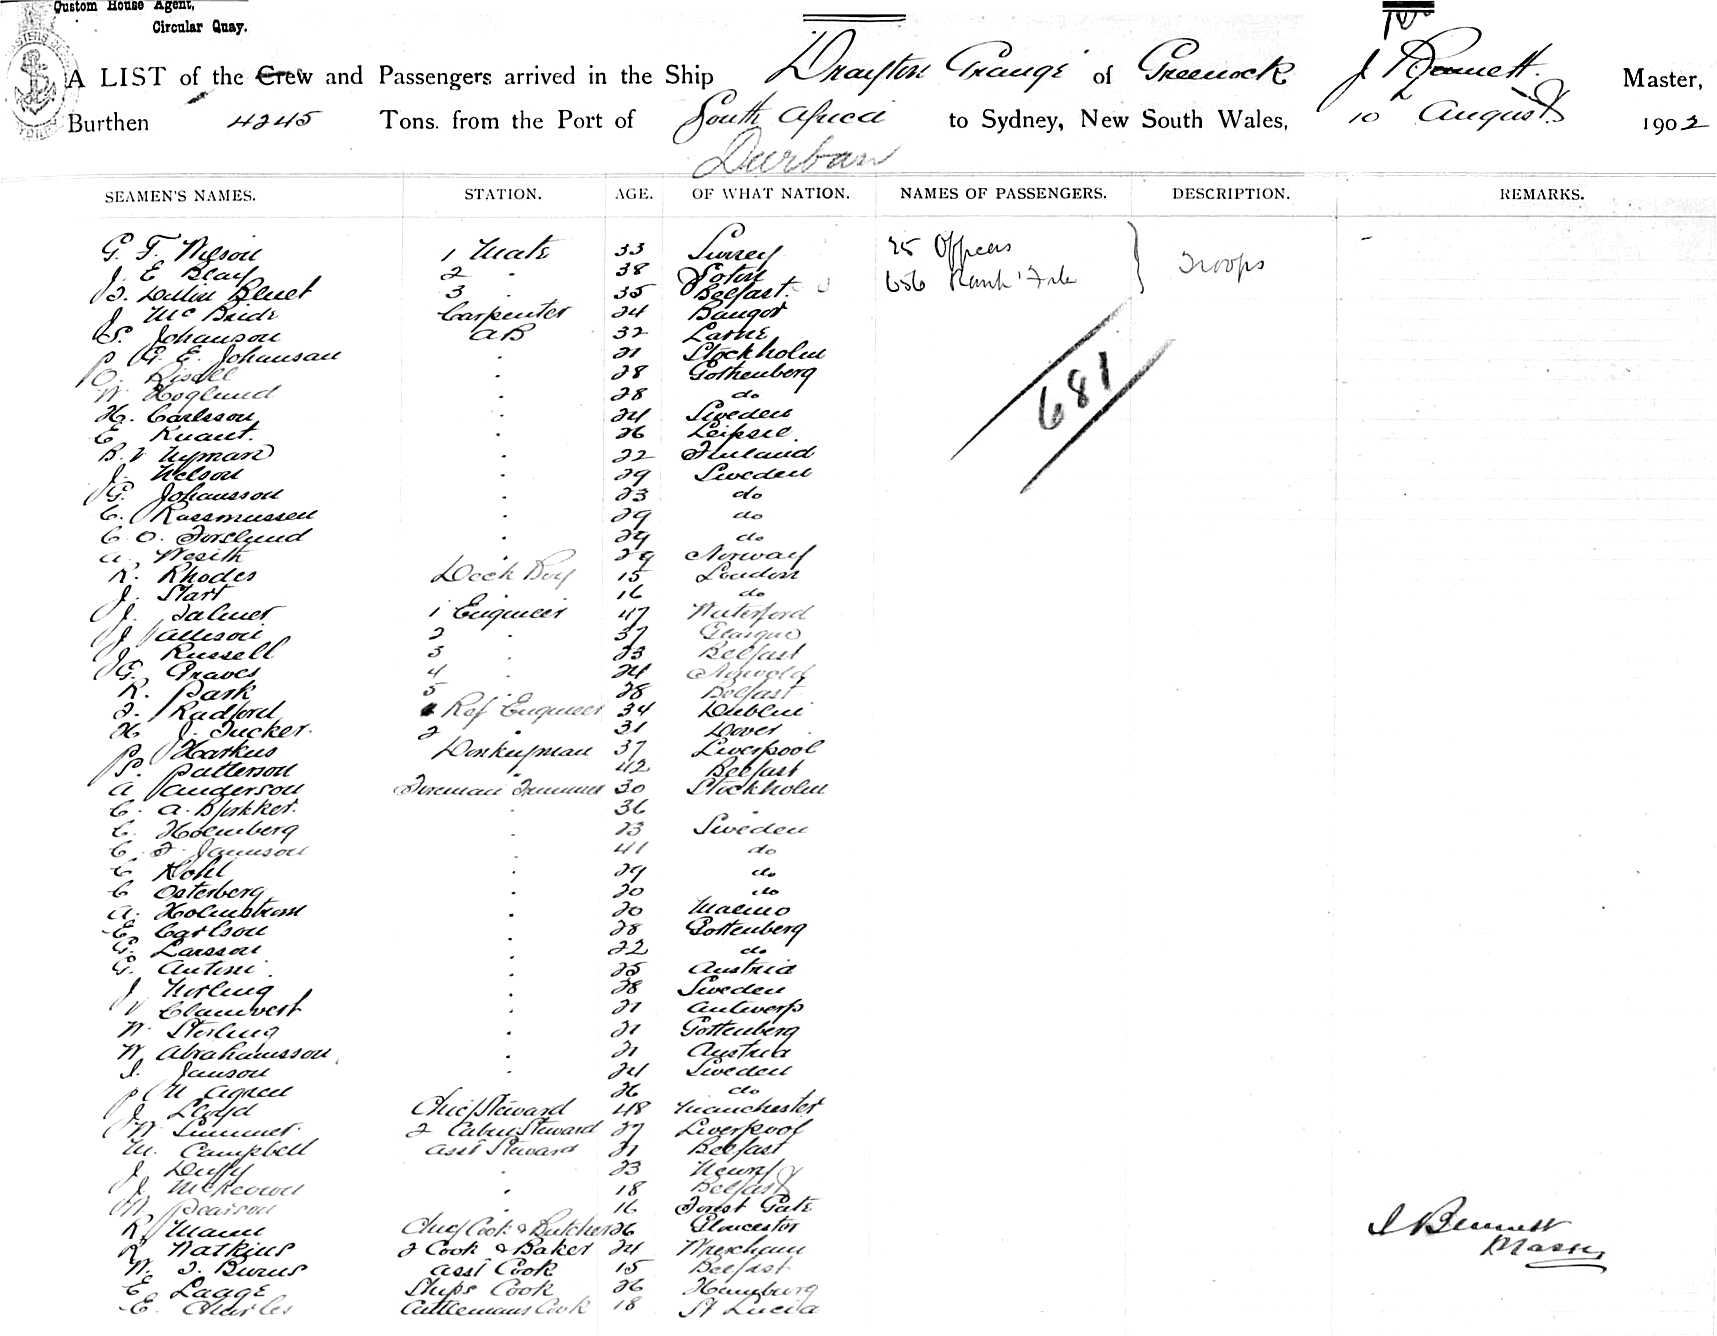 Custom House Agent,
Circular Quay.
A LIST of the Crew and Passengers arrived in the Ship Drayton Grange of Greenock J Bennett Master,
Burthen 4245 Tons. from the Port of South Africa to Sydney, New South Wales, 10 August 1902
Durban
SEAMEN'S NAMES. STATION. AGE. OF WHAT NATION. NAMES OF PASSENGERS. DESCRIPTION. REMARKS.
G. F. Wilson 1 Mate 33 Surrey 25 Officers
J. E Blay 2 " 38 Soton Troops
Bluet 3 " 35 Belfast. 656 Rank & File
J. McBride Carpenter 24 Bangor
S. Johanson AB 32 Larne
P G. E. Johansan " 21 Stockholm
O. " 28 Gothenberg
W Hoglund " 28 do
681
H. Carlsson " 24 Sweden
E Knaut. " 26 Leipsic.
R. V Nyman " 22 Finland
J. Nelson " 29 Sweden
G. Johansson " 23 do
C. Rassmussen " 29 do
C. O. Forslund " 29 do
A. " 29 Norway
R. Rhodes Deck Boy 15 London
J. Start " 16 do
J. 1 Engineer 47 Waterford
J Allison 2 " 37 Glasgow
J Russell 3 " 23 Belfast
G. Graves 4 " 24
R. Park 5 " 28 Belfast
F. Radford 1 Ref Engineer 34 Dublin
H J. Tucker. 2 " 31 Dover
P Harkus Donkeyman 37 Liverpool
S. Patterson " 42 Belfast
A Anderson Fireman Trimmer 30 Stockholm
C. A. " 36 "
C. Holmberg " 23 Sweden
C. F. " 41 do
C Kohl " 29 do
C Osterberg " 20 do
A. Holmstrom " 20 Malmo
E Carlson " 28 Gottenberg
G. Larsson " 22 do
G. Antoni " 25 Austria
J " 28 Sweden
V " 21 Antwerp
W. Sterling " 21 Gottenberg
W Abrahamsson " 21 Austria
J. Janson " 24 Sweden
P N Agren " 26 do
J Lloyd Chief Steward 48 Manchester
W Summer. 2 Cabin Steward 27 Liverpool
M. Campbell Asst Steward 21 Belfast
J Duffy " 23 Newry
J McKeown " 18 Belfast
W Pearson " 16 Forest Gate
R Mann Chief Cook & Butcher 26 Gloucester J Bennett
R. Watkins 2 Cook & Baker 24 Wrexham Master
W. J. Burns Asst Cook 15 Belfast
E Laage Ships Cook 26 Hamburg
E. Charles Cattlemans Cook 18 St Lucia